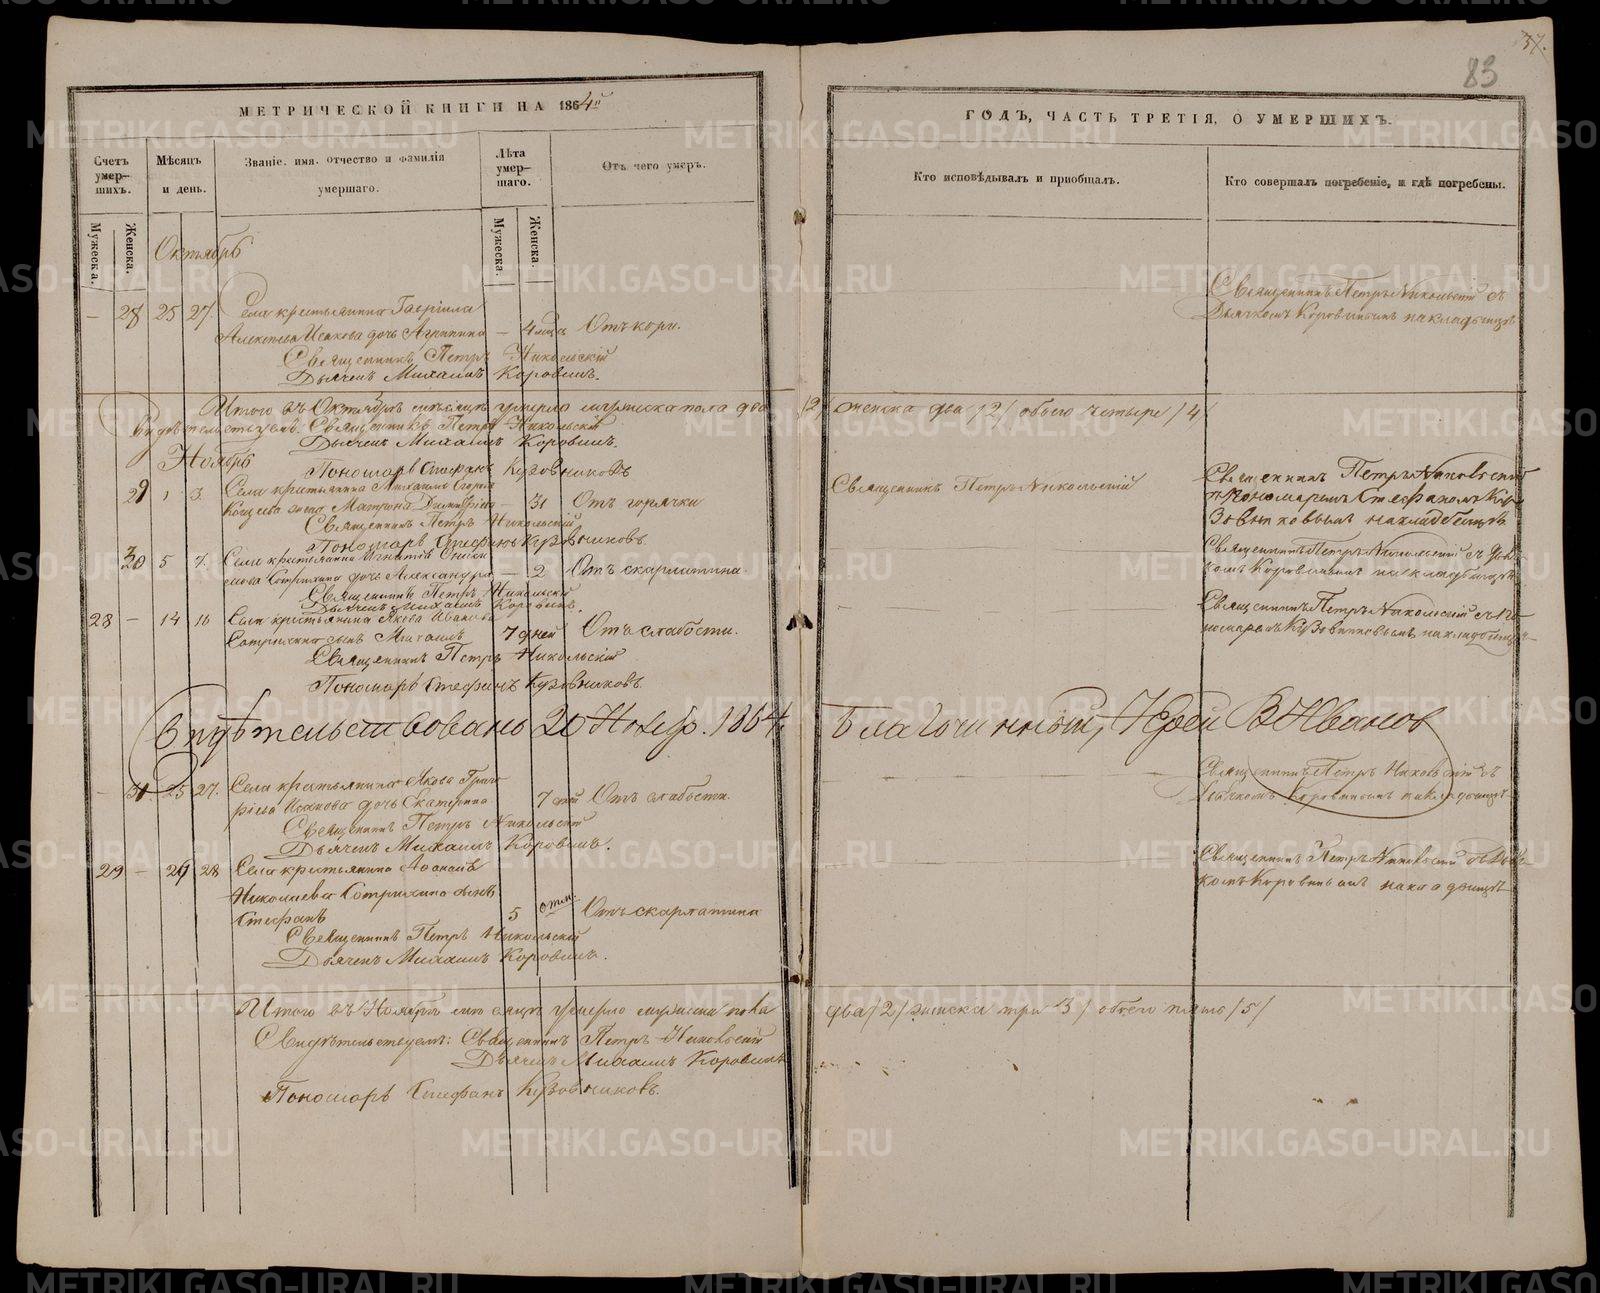 37.
83
МЕТРИЧЕСКОЙ КНИГИ НА 1864й
ГОДЪ, ЧАСТЬ ТРЕТІЯ, О УМЕРШИХЪ.
Счетъ умер- шихъ.
Мѣсяцъ и день.
Званіе, имя, отчество и фамилія умершаго.
Лѣта умер- шаго.
Отъ чего умеръ.
Кто исповѣдывалъ и пріобщалъ.
Кто совершалъ погребеніе, и гдѣ погребены.
Мужеска.
Женска.
Мужеска.
Женска.
Октябрь
28 25 27. Села крестьянина Гавріила
Алексѣева Исакова дочь Агрипина – 4 мѣца Отъ кори.
Священникъ Петръ Никольскій
Дьячекъ Михаилъ Коровинъ.
Священникъ Петръ Никольскій съ
Дьячкомъ Коровинымъ на кладбищѣ
Итого въ Октябрѣ мѣсяцѣ умерло мужеска пола два /2/ женска два /2/ обоего четыре /4/
Свидѣтельствуемъ: Священникъ Петръ Никольскій
Дьячекъ Михаилъ Коровинъ.
Пономарь Стефанъ Кузовниковъ
Ноябрь
29 1 3. Села крестьянина Михаила
жена Матрона – 31 Отъ горячки
Священникъ Петръ Никольскій
Пономарь Стефанъ Кузовниковъ
Священникъ Петръ Никольскій
Священникъ Петръ Никольскій
съ Пономаремъ Стефаномъ Ку-
зовниковымъ на кладбищѣ
30 5 7. Села крестьянина Игнатія
дочь Александра – 2 Отъ скарлатина.
Священникъ Петръ Никольскій
Дьячекъ Михаилъ Коровинъ.
Священникъ Петръ Никольскій съ Дьяч-
комъ Коровинымъ на кладбищѣ
28 – 14 16 Села крестьянина Якова Иванова
сынъ Михаилъ 7 дней Отъ слабости.
Священникъ Петръ Никольскій
Пономарь Стефанъ Кузовниковъ.
Священникъ Петръ Никольскій съ По-
номаремъ Кузовниковымъ на кладбищѣ
Свидѣтельствовано 20 Ноябр. 1864. Благочинный, Іерей В Ивановъ
– 31. 25 27. Села крестьянина Якова Григо-
ріева Исакова дочь Екатерина 7 дней Отъ слабости.
Священникъ Петръ Никольскій
Дьячекъ Михаилъ Коровинъ.
Священникъ Петръ Никольскій съ
Дьячкомъ Коровинымъ на кладбищѣ
29 – 26 28 Села крестьянина Афанасія
Николаева сынъ
Стефанъ 5 Отъ скарлатина
Священникъ Петръ Никольскій
Дьячекъ Михаилъ Коровинъ.
Священникъ Петръ Никольскій съ Дьяч-
комъ Коровинымъ на кладбищѣ
Итого въ Ноябрѣ мѣсяцѣ умерло мужеска пола два /2/ женска три /3/ обоего пять /5/
Свидѣтельствуемъ: Священникъ Петръ Никольскій
Дьячекъ Михаилъ Коровинъ
Пономарь Стефанъ Кузовниковъ.
METRIKI.GASO-URAL.RU